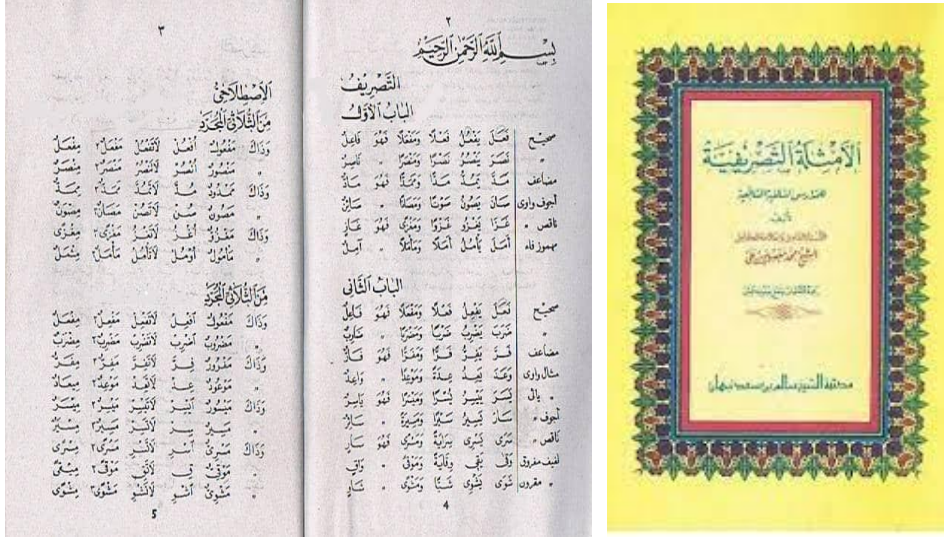 الأَمْثِلَةُ التَّصْرِيفِيَّةُ
للمدارس السلفية الشافعية
تأليف
الشيخ محمد معصوم بن علي
مكتبة الشيخ سالم بن سعد نبهان
٢
بِسْمِ اللهِ الرَّحْمٰنِ الرَّحِيْمِ
التَّصْرِيفُ
الْبَابُ الْأَوَّلُ
صحيح فَعَلَ يَفْعُلُ فَعْلًا وَمَفْعَلًا فَهُوَ فَاعِلٌ
" نَصَرَ يَنْصُرُ نَصْرًا وَمَنْصَرًا " نَاصِرٌ
مضاعف مَدَّ يَمُدُّ مَدًّا وَمَمَدًّا فَهُوَ مَادٌّ
أجوف واوى صَانَ يَصُونُ صَوْنًا وَمَصَانًا " صَائِنٌ
ناقص " غَزَا يَغْزُو غَزْوًا وَمَغْزًى فَهُوَ غَازٍ
مهموز فاء أَمَلَ يَأْمُلُ أَمَلًا وَمَأْمَلًا " آمِلٌ
الْبَابُ الثَّانِى
صحيح فَعَلَ يَفْعِلُ فَعْلًا وَمَفْعَلًا فَهُوَ فَاعِلٌ
" ضَرَبَ يَضْرِبُ ضَرْبًا وَمَضْرَبًا " ضَارِبٌ
مضاعف فَرَّ يَفِرُّ فَرًّا وَمَفَرًّا فَهُوَ فَارٌّ
مثال واوى وَعَدَ يَعِدُ عِدَةً وَمَوْعِدًا " وَاعِدٌ
" يائى يَسَرَ يَيْسِرُ يُسْرًا وَمَيْسَرًا فَهُوَ يَاسِرٌ
أجوف " سَارَ يَسِيرُ سَيْرًا وَمَسِيرَةً " سَائِرٌ
ناقص " سَرَى يَسْرِى سِرَايَةً وَمَسْرًى فَهُوَ سَارٍ
لفيف مفروق وَقَى يَقِى وِقَايَةً وَمَوْقًى " وَاقٍ
" مقرون شَوَى يَشْوِى شَيًّا وَمَشْوًى " شَاوٍ
4
٣
الْإِصْطِلَاحِىُّ
مِنَ الثُّلَاثِيِّ الْمُجَرَّدِ
وَذَاكَ مَفْعُولٌ اُفْعُلْ لَاتَفْعُلْ مَفْعَلٌ٢ مِفْعَلٌ
" مَنْصُورٌ اُنْصُرْ لَاتَنْصُرْ مَنْصَرٌ٢ مِنْصَرٌ
وَذَاكَ مَمْدُودٌ مُدَّ لَاتَمُدَّ مَمَدٌّ٢ مِمَدٌّ
" مَصُونٌ صُنْ لَاتَصُنْ مَصَانٌ٢ مِصْوَنٌ
وَذَاكَ مَغْزُوٌّ اُغْزُ لَاتَغْزُ مَغْزًى٢ مِغْزًى
" مَأْمُولٌ اُومُلْ لَاتَأْمُلْ مَأْمَلٌ٢ مِئْمَلٌ
مِنَ الثُّلَاثِيِّ الْمُجَرَّدِ
وَذَاكَ مَفْعُولٌ اِفْعِلْ لَاتَفْعِلْ مَفْعِلٌ٢ مِفْعَلٌ
" مَضْرُوبٌ اِضْرِبْ لَاتَضْرِبْ مَضْرِبٌ٢ مِضْرَبٌ
وَذَاكَ مَفْرُورٌ فِرَّ لَاتَفِرَّ مَفِرٌّ٢ مِفَرٌّ
" مَوْعُودٌ عِدْ لَاتَعِدْ مَوْعِدٌ٢ مِيعَادٌ
وَذَاكَ مَيْسُورٌ اِيْسِرْ لَاتَيْسِرْ مَيْسِرٌ٢ مِيسَرٌ
" مَسِيرٌ سِرْ لَاتَسِرْ مَسِيرٌ٢ مِسْيَرٌ
وَذَاكَ مَسْرِىٌّ اِسْرِ لَاتَسْرِ مَسْرًى٢ مِسْرًى
" مَوْقِىٌّ قِ لَاتَقِ مَوْقًى٢ مِيقًى
" مَشْوِىٌّ اِشْوِ لَاتَشْوِ مَشْوًى٢ مِشْوًى
5